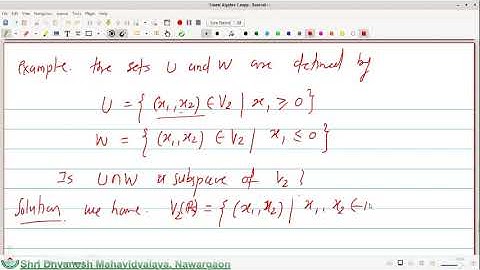 Example. The sets U and W are defined by
U = { (x₁, x₂) ∈ V₂ | x₁ ≥ 0 }
W = { (x₁, x₂) ∈ V₂ | x₁ ≤ 0 }
Is U∩W a subspace of V₂ ?
Solution we have. V₂(R) = { (x₁, x₂) | x₁, x₂ ∈
Shri Dnyanesh Mahavidyalaya, Nawargaon